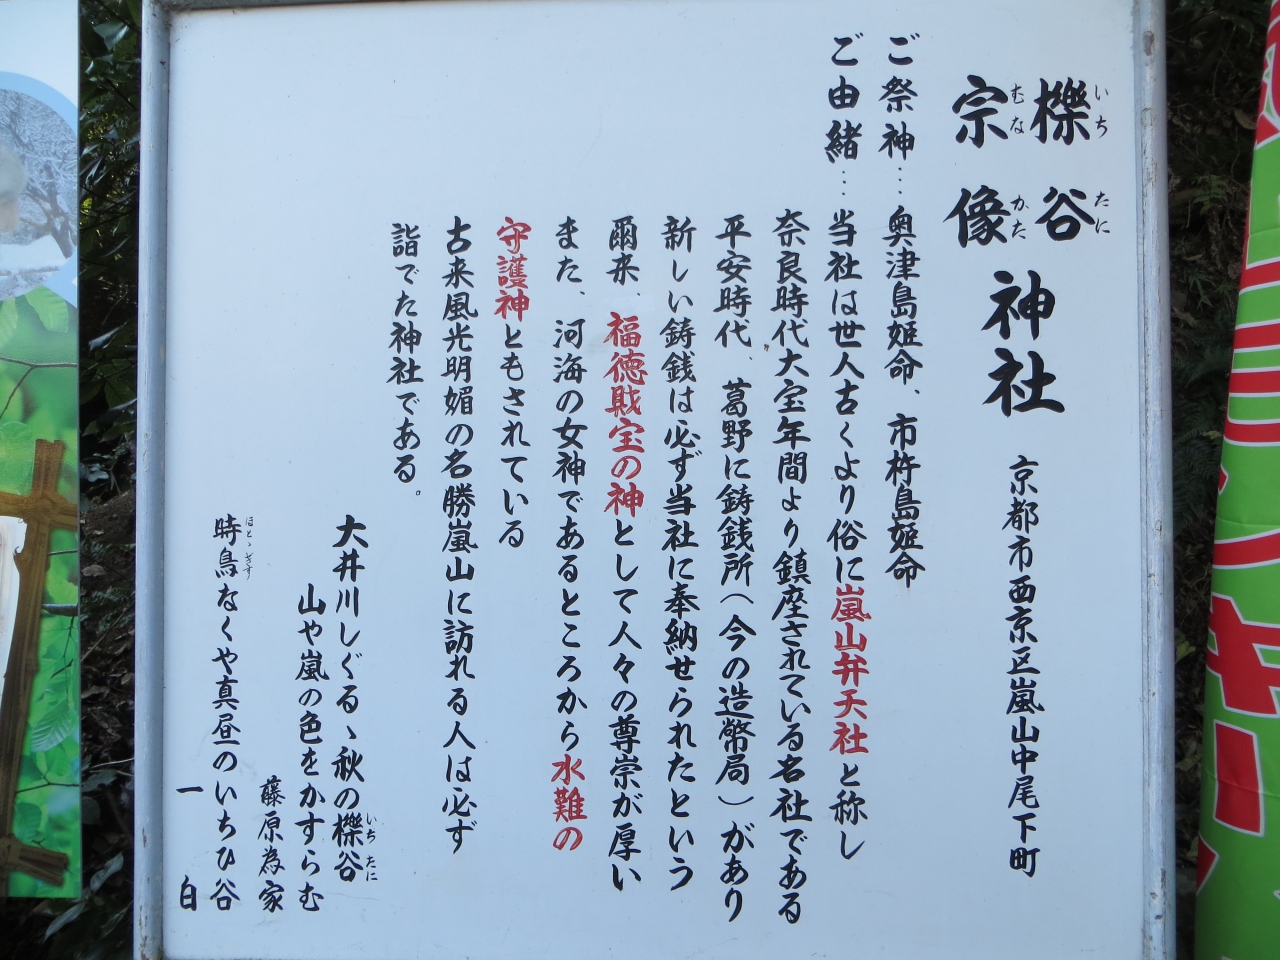 櫟谷
宗像
神社
いちたに
むなかた
京都市西京区嵐山中尾下町
ご祭神…奥津島姫命、市杵島姫命
ご由緒…当社は世人古くより俗に嵐山弁天社と称し
奈良時代大宝年間より鎮座されている名社である
平安時代、葛野に鋳銭所(今の造幣局)があり
新しい鋳銭は必ず当社に奉納せられたという
爾来、福徳財宝の神として人々の尊崇が厚い
また、河海の女神であるところから水難の
守護神ともされている
古来風光明媚の名勝嵐山に訪れる人は必ず
詣でた神社である。
大井川しぐるゝ秋の櫟谷
いちたに
山や嵐の色をかすらむ
藤原為家
時鳥なくや真昼のいちひ谷
ほとゝぎす
一白